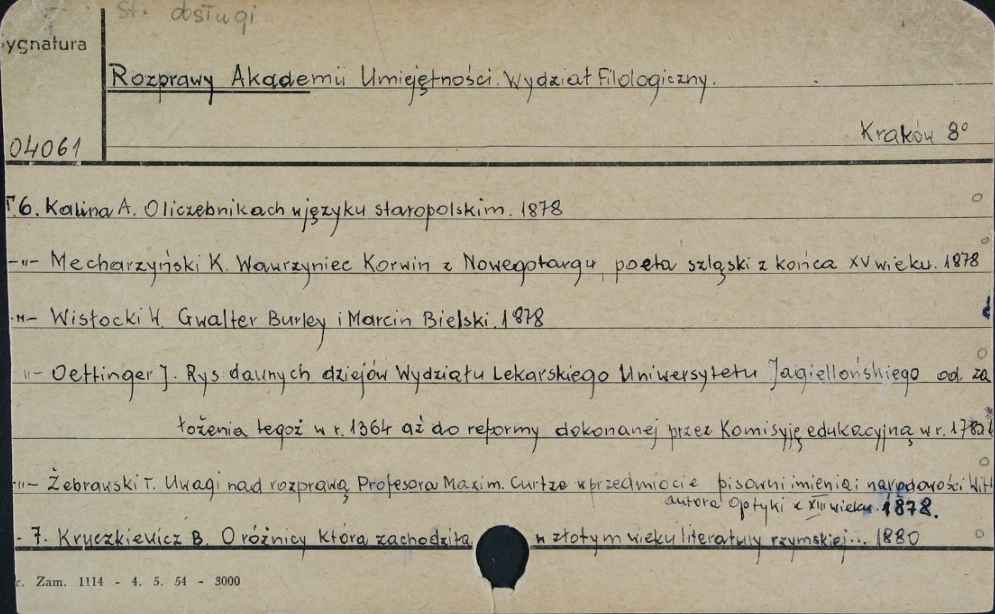 St. obsługi
ygnatura
Rozprawy Akademii Umiejętności. Wydział Filologiczny.
04061
Kraków 8°
T.6. Kalina A. O liczebnikach w języku staropolskim. 1878
-"- Mecharzyński K. Wawrzyniec Korwin z Nowegotargu, poeta szląski z końca XV wieku. 1878
-"- Wisłocki W. Gwalter Burley i Marcin Bielski. 1878
"- Oettinger J. Rys dawnych dziejów Wydziału Lekarskiego Uniwersytetu Jagiellońskiego od za
łożenia tegoż w r. 1364 aż do reformy dokonanej przez Komisyję edukacyjną w r.
-"- Żebrawski T. Uwagi nad rozprawą Profesora Maxim. Curtze w przedmiocie pisowni imienia i narodowości Wit
autora Optyki z XIII wieku. 1878.
- 7. Kruczkiewicz B. O różnicy która zachodziła w złotym wieku literatury rzymskiej... 1880
r. Zam. 1114 - 4. 5. 54 - 3000